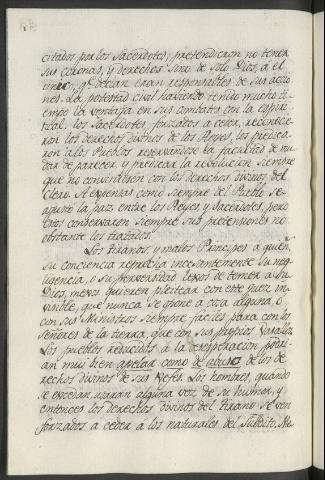 citados por los Sacerdotes, pretendieron no tener
sus coronas, y derechos sino de solo Dios, à el
unico, qe. decian eran responsables de sus accio
nes. La potestad civil haviendo tenido mucho ti-
empo la ventaja en sus combates con la espiri-
tual, los Sacerdotes forzados a ceder, reconocie-
ron los derechos divinos de los Reyes, los predica-
ron a los Pueblos reservandose la facultad de mu
dar de parecer, y predicar la revolucion siempre
que no conviniesen con los derechos divinos del
Clero. A expensas como siempre del Pueblo se
ajustò la paz entre los Reyes y Sacerdotes, pero
estos conservaron siempre sus pretensiones no
obstante los tratados.
Los tiranos, y malos Principes a quien.
su conciencia reprocha incesantemente su neg-
ligencia, o su perversidad lexos de temer a su
Dios, mas quieren pleitear con este juez in-
visible, que nunca se opone a cosa alguna, ò
con sus Ministros siempre faciles para con los
señores de la tierra, que con sus propios Vasallos
Los pueblos reducidos à la desesperacion podri-
an muy bien apelar como de abuso de los de
rechos divinos de sus Gefes. Los hombres, quando
se exceden, varian alguna vez de su humor, y
entonces los derechos divinos del tirano se ven
forzados a ceder a los naturales del Subdito. Ma